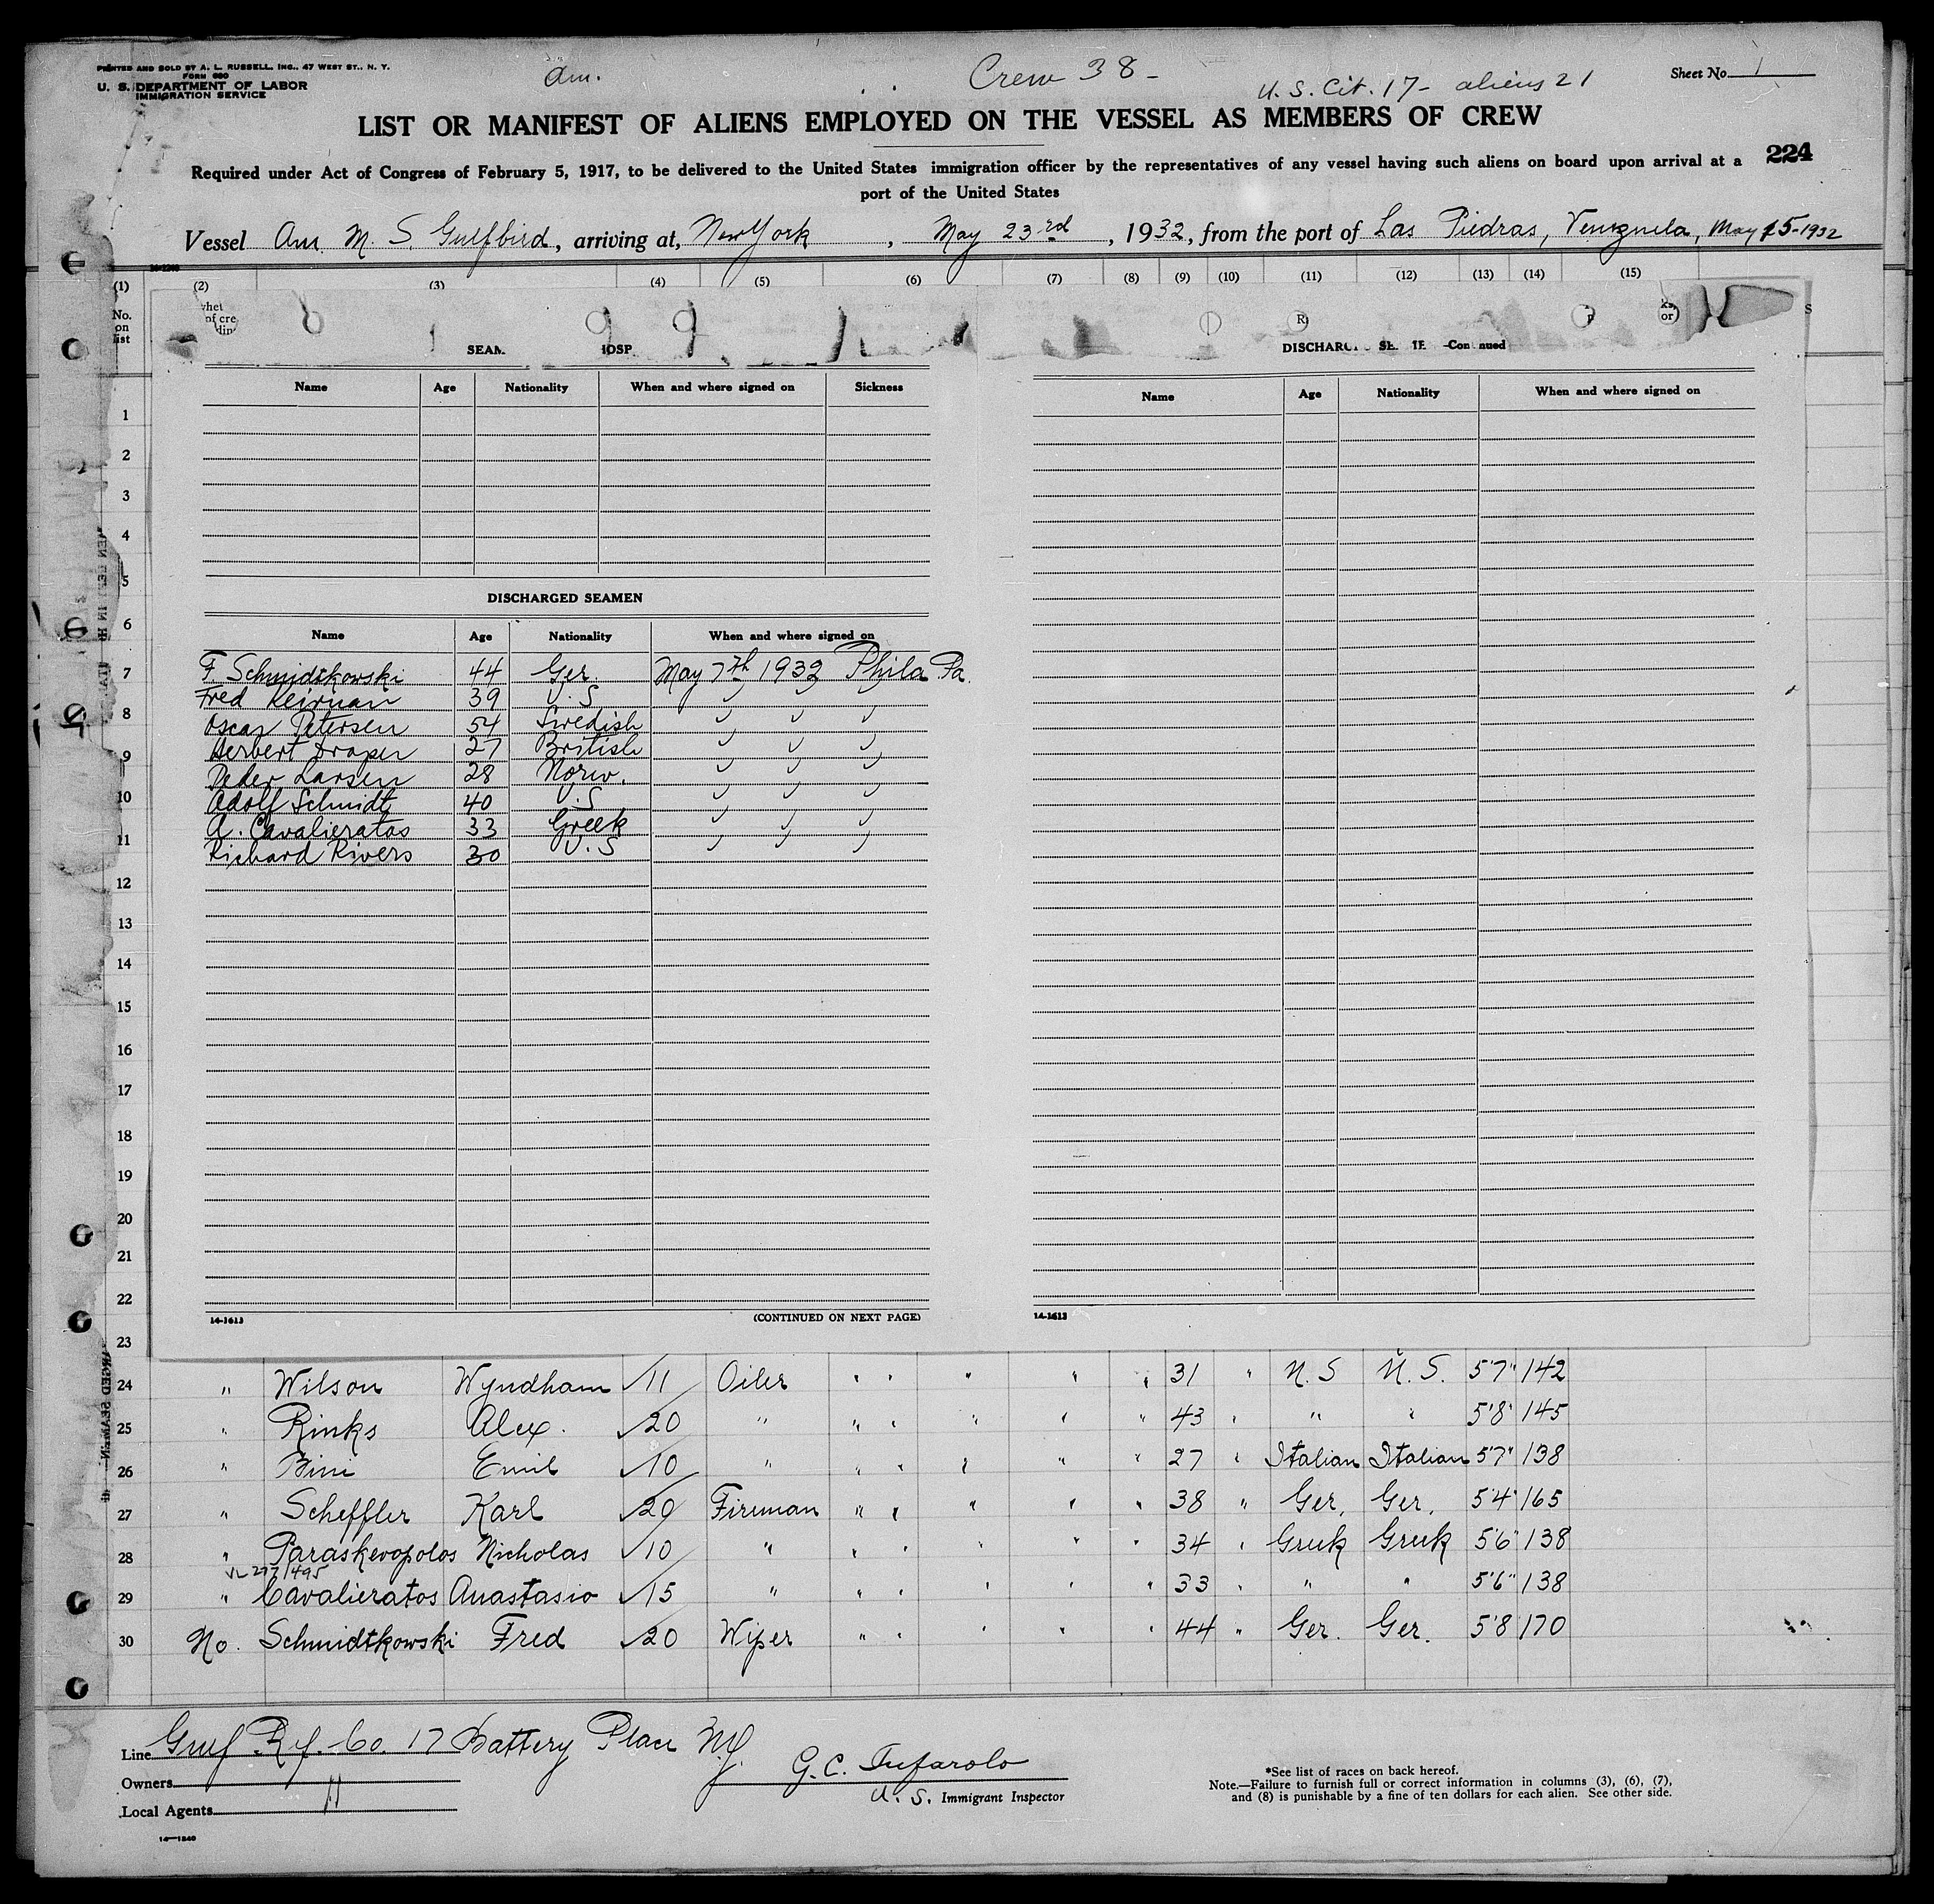 PRINTED AND SOLD BY A. L. RUSSELL, INC., 47 WEST ST., N. Y.
FORM 680
U. S. DEPARTMENT OF LABOR
IMMIGRATION SERVICE
Am.
Crew 38 -
U. S. Cit. 17 - aliens 21
Sheet No. 1
LIST OR MANIFEST OF ALIENS EMPLOYED ON THE VESSEL AS MEMBERS OF CREW
224
Required under Act of Congress of February 5, 1917, to be delivered to the United States immigration officer by the representatives of any vessel having such aliens on board upon arrival at a
port of the United States
Vessel Am M. S. Gulfbird, arriving at, New York, May 23rd, 1932, from the port of Las Piedras, Venezuela, May 15-1932
(1) (2) (3) (4) (5) (6) (7) (8) (9) (10) (11) (12) (13) (14) (15)
No. on list
DISCHARGED SEAMEN
Name Age Nationality When and where signed on Sickness
Name Age Nationality When and where signed on
Name Age Nationality When and where signed on
F. Schmidtkowski 44 Ger. May 7th 1932 Phila Pa.
Fred Keirnan 39 U.S
Oscar Petersen 54 Swedish
Herbert Draper 27 British
Peder Larsen 28 Norw.
Adolf Schmidt 40 U.S
A. Cavalieratos 33 Greek
Richard Rivers 30 U.S
1
2
3
4
5
6
7
8
9
10
11
12
13
14
15
16
17
18
19
20
21
22
23
14-1613 (CONTINUED ON NEXT PAGE) 14-1613
24 " Wilson Wyndham √11 Oiler " " " " " 31 " U.S U.S. 5'7" 142
25 " Rinks Alex. √20 " " " " " " 43 " " " 5'8" 145
26 " Bini Emil √10 " " " " " " 27 " Italian Italian 5'7" 138
27 " Scheffler Karl √20 Fireman " " " " " 38 " Ger. Ger. 5'4" 165
28 " Paraskevopolos Nicholas √10 " " " " " " 34 " Greek Greek 5'6" 138
VL 277/495
29 " Cavalieratos Anastasio √15 " " " " " " 33 " " " 5'6" 138
30 No. Schmidtkowski Fred √20 Wiper " " " " " 44 " Ger. Ger. 5'8 170
Line Gulf Rf. Co. 17 Battery Place N.Y.
Owners "
Local Agents
G. C. Tufarolo
U. S. Immigrant Inspector
*See list of races on back hereof.
Note.—Failure to furnish full or correct information in columns (3), (6), (7),
and (8) is punishable by a fine of ten dollars for each alien. See other side.
14—1240